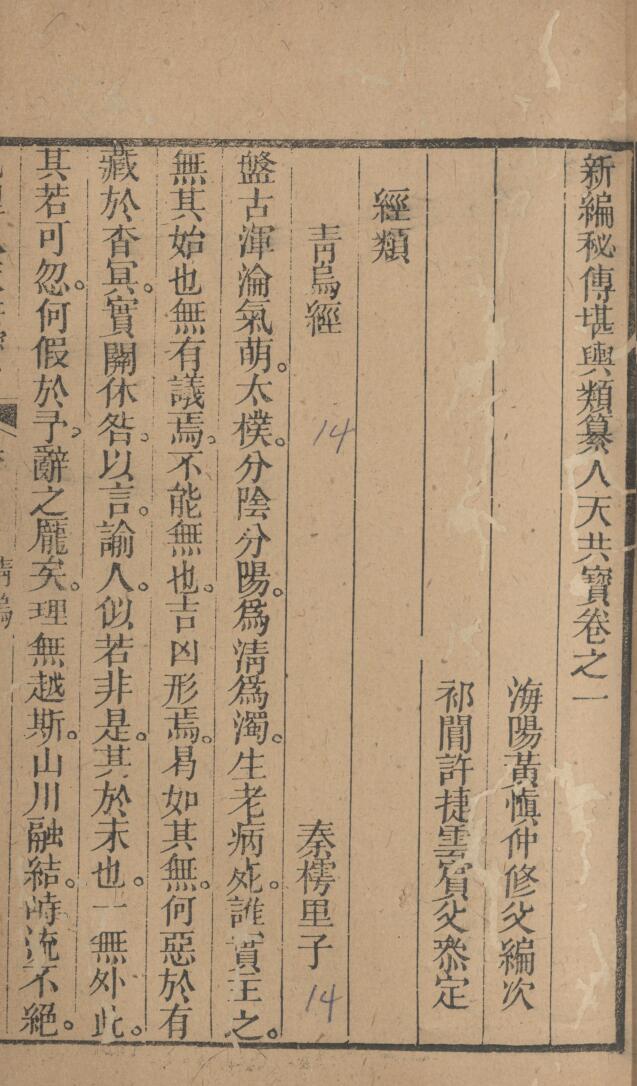 新編秘傳堪輿類纂人天共寶卷之一
海陽黃慎仲修父編次
祁閶許捷雲賓父叅定
經類
青烏經 14 秦樗里子 14
盤古渾淪氣萌。太樸。分陰分陽。爲清爲濁。生老病死。誰實主之。
無其始也無有議焉。不能無也。吉凶形焉。曷如其無。何惡於有
藏於杳冥。實關休咎。以言。諭人。似若非是。其於末也。一無外此。
其若可忽。何假於予。辭之厖矣。理無越斯。山川融結。峙流不絕。